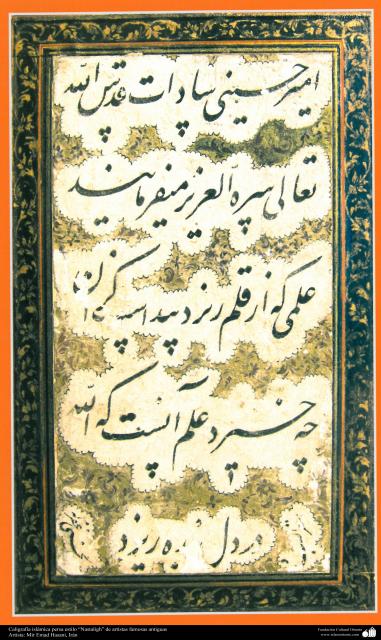 امیر حسینی سادات قدس الله
تعالی سره العزیز میفرمایند
علمی که از قلم ریزد پیداست کزان
چه خیزد علم آنست که الله
در دل ریزد
Caligrafía islámica persa estilo "Nastaligh" de artistas famosas antiguas
Artista: Mir Emad Hasani, Irán
Fundación Cultural Oriente
www.islamoriente.com